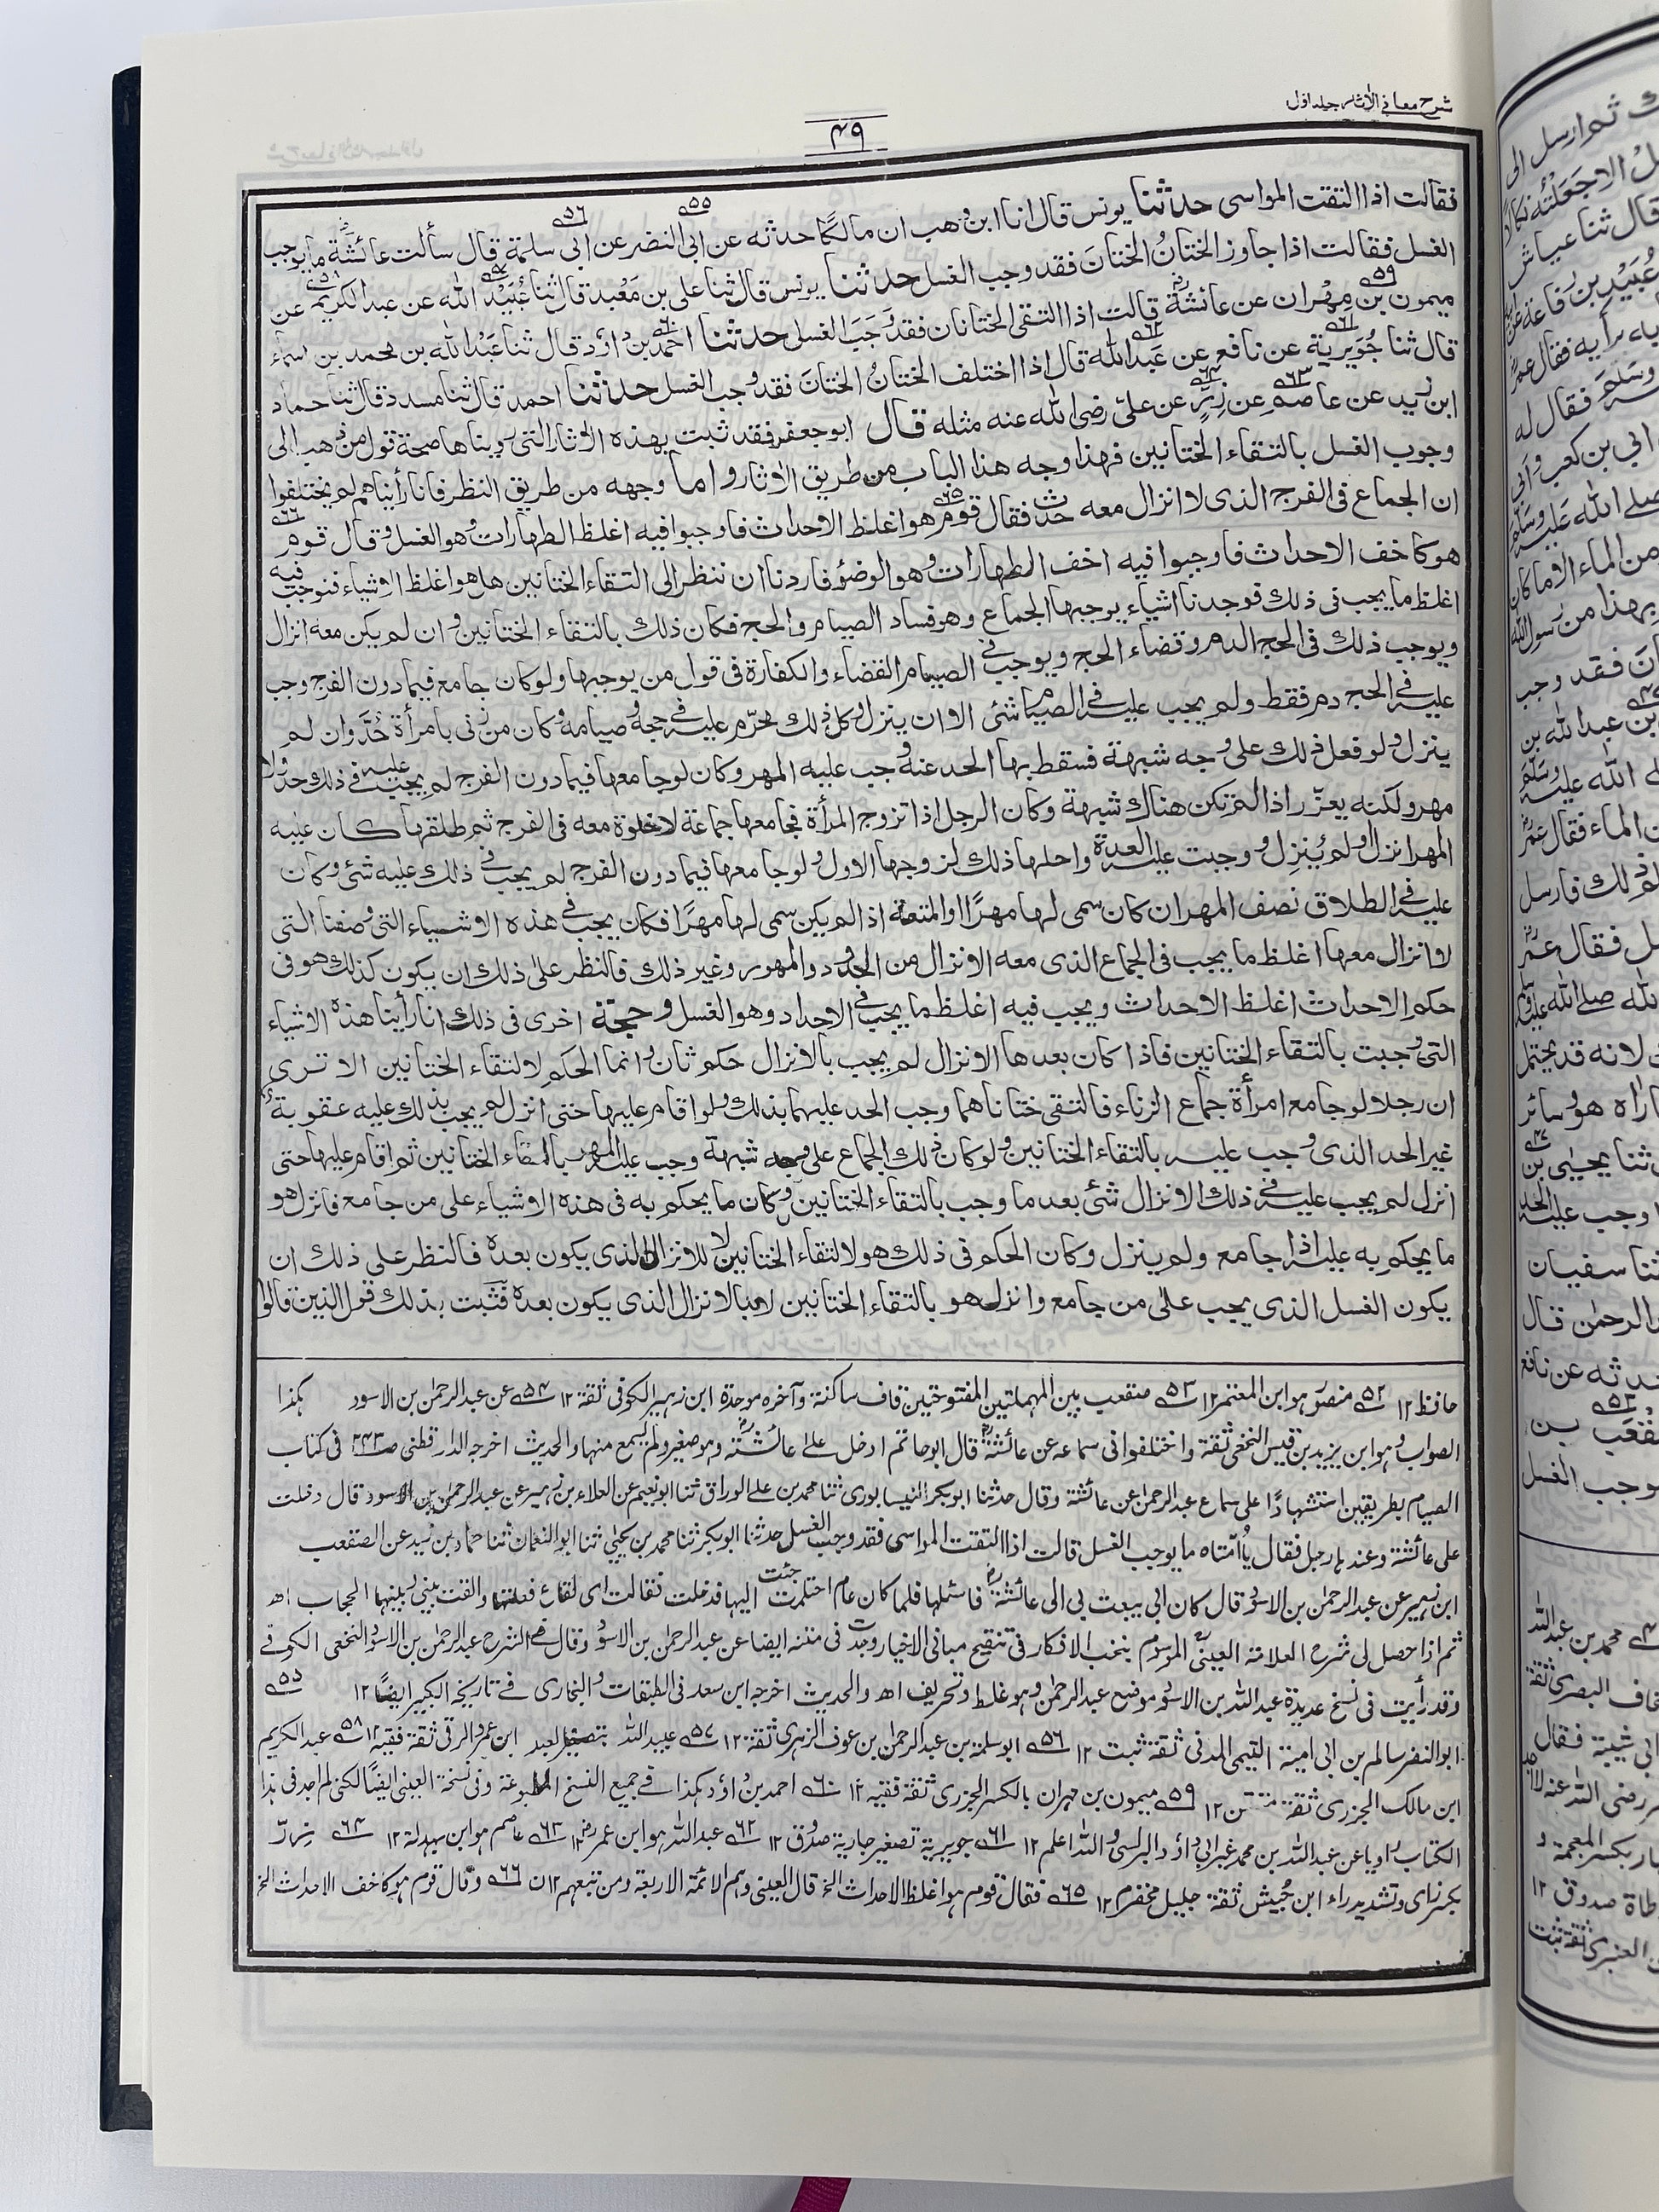 شرح معاني الاثار جلد اول
٤٩
فقالت اذا التقت المواسى حدثنا يونس قال انا ابن وهب ان مالكًا حدثه عن ابى النضر عن ابى سلمة قال سألت عائشة ما يوجب
الغسل فقالت اذا جاوز الختانُ الختانَ فقد وجب الغسل حدثنا يونس قال ثنا على بن مَعْبد قال ثنا عُبَيْد الله عن عبد الكريم عن
ميمون بن مِهْران عن عائشة قالت اذا التقى الختانان فقد وَجَبَ الغسل حدثنا احمد بن داؤد قال ثنا عَبْد الله بن محمد بن اسماء
قال ثنا جُوَيرية عن نافع عن عَبد الله قال اذا اختلف الختانُ الختانَ فقد وجب الغسل حدثنا احمد قال ثنا مسدد قال ثنا حماد
ابن زيد عن عاصم عن زِرٍّ عن علىّ رضى الله عنه مثله قال ابو جعفر فقد ثبت بهذه الاٰثار التى رويناها صحة قول من ذهب الى
وجوب الغسل بالتقاء الختانين فهذا وجه هذا الباب من طريق الاٰثار واما وجهه من طريق النظر فانا رأيناهم لم يختلفوا
ان الجماع فى الفرج الذى لا انزال معه حدث فقال قوم هو اغلظ الاحداث فاوجبوا فيه اغلظ الطهارات وهو الغسل وقال قوم
هو كاخف الاحداث فاوجبوا فيه اخف الطهارات وهو الوضؤ فاردنا ان ننظر الى التقاء الختانين هل هو اغلظ الاشياء فنوجب فيه
اغلظ ما يجب فى ذلك فوجدنا اشياء يوجبها الجماع وهو فساد الصيام والحج فكان ذلك بالتقاء الختانين وان لم يكن معه انزال
ويوجب ذلك فى الحج الدم وقضاء الحج ويوجب فى الصيام القضاء والكفارة فى قول من يوجبها ولو كان جامع فيما دون الفرج وجب
عليه فى الحج دم فقط ولم يجب عليه فى الصيام شئ الا ان ينزل وكل ذلك محرّم عليه فى حجه وصيامه وكان من زنى بامرأة حُدَّ وان لم
ينزل ولو فعل ذلك على وجه شبهة فسقط بها الحد عنه وجب عليه المهر وكان لو جامعها فيما دون الفرج لم يجب عليه فى ذلك حد ولا
مهر ولكنه يعزّر اذا لم تكن هناك شبهة وكان الرجل اذا تزوج المرأة فجامعها جماعة لا خلوة معه فى الفرج ثم طلقها كان عليه
المهر انزل او لم يُنزِل ووجبت عليها العدة واحلها ذلك لزوجها الاول ولو جامعها فيما دون الفرج لم يجب فى ذلك عليه شئ وكان
عليه فى الطلاق نصف المهر ان كان سمى لها مهرًا او المتعة اذا لم يكن سمى لها مهرًا فكان يجب فى هذه الاشياء التى وصفنا التى
لا انزال معها اغلظ ما يجب فى الجماع الذى معه الانزال من الحدود والمهور وغير ذلك فالنظر على ذلك ان يكون كذلك هو فى
حكم الاحداث اغلظ الاحداث ويجب فيه اغلظ ما يجب فى الاحداث وهو الغسل وحجة اخرى فى ذلك انا رأينا هذه الاشياء
التى وجبت بالتقاء الختانين فاذا كان بعدها الانزال لم يجب بالانزال حكم ثان وانما الحكم لالتقاء الختانين الا ترى
ان رجلا لو جامع امرأة جماع الزناء فالتقى ختاناهما وجب الحد عليهما بذلك ولو اقام عليها حتى انزل لم يجب بذلك عليه عقوبة
غير الحد الذى وجب عليه بالتقاء الختانين ولو كان ذلك الجماع على وجه شبهة وجب عليه المهر بالتقاء الختانين ثم اقام عليها حتى
انزل لم يجب عليه فى ذلك الانزال شئ بعد ما وجب بالتقاء الختانين وكان ما يحكم به فى هذه الاشياء على من جامع فانزل هو
ما يحكم به عليه اذا جامع ولم ينزل وكان الحكم فى ذلك هو لالتقاء الختانين لا للانزال الذى يكون بعده فالنظر على ذلك ان
يكون الغسل الذى يجب على من جامع وانزل هو بالتقاء الختانين لا بالانزال الذى يكون بعده فثبت بذلك قول الذين قالوا
حافظ ١٢ ٥٢ منصور هو ابن المعتمر ١٢ ٥٣ صقعب بين المهملتين المفتوحتين قاف ساكنة وآخره موحدة ابن زهير الكوفى ثقة ١٢ ٥٤ عن عبد الرحمٰن بن الاسود هٰكذا
الصواب وهو ابن يزيد بن قيس النخعى ثقة واختلفوا فى سماعه عن عائشة قال ابو حاتم ادخل على عائشة وهو صغير ولم يسمع منها والحديث اخرجه الدارقطنى ص٢٤٣ فى كتاب
الصيام بطريقين استشهادًا على سماع عبد الرحمٰن عن عائشة وقال حدثنا ابو بكر النيسابورى ثنا محمد بن على الوراق ثنا ابو نعيم عن العلاء بن زهير عن عبد الرحمٰن بن الاسود قال دخلت
على عائشة وعندها رجل فقال يا أمّتاه ما يوجب الغسل قالت اذا التقت المواسى فقد وجب الغسل حدثنا ابو بكر ثنا محمد بن يحيٰى ثنا ابو النعمان ثنا حماد بن زيد عن الصقعب
ابن زهير عن عبد الرحمٰن بن الاسود قال كان ابى يبعث بى الى عائشة فاسئلها فلما كان عام احتلمت جئت اليها فدخلت فقالت اى لقاع فعلتها والقت بينى وبينها الحجاب اهـ
ثم اذا حصل لى شرح العلامة العينى الموسوم بنخب الافكار فى تنقيح مبانى الاخبار وجدت فى متنه ايضا عن عبد الرحمٰن بن الاسود وقال فى الشرح عبد الرحمٰن بن الاسود النخعى الكوفى
وقد رأيت فى نسخ عديدة عبد الله بن الاسود موضع عبد الرحمٰن وهو غلط وتحريف اهـ والحديث اخرجه ابن سعد فى الطبقات والبخارى فى تاريخه الكبير ايضًا ١٢ ٥٥
ابو النضر سالم بن ابى امية القيمى المدنى ثقة ثبت ١٢ ٥٦ ابو سلمة بن عبد الرحمٰن بن عوف الزهرى ثقة ١٢ ٥٧ عبيد الله بتصغير العبد ابن عمرو الرقى ثقة فقيه ١٢ ٥٨ عبد الكريم
ابن مالك الجزرى ثقة متقن ١٢ ٥٩ ميمون بن مهران بالكسر الجزرى ثقة فقيه ١٢ ٦٠ احمد بن داؤد هكذا فى جميع النسخ المطبوعة وفى نسخة العينى ايضًا لكنى لم اجد فى هذا
الكتاب راويا عن عبد الله بن محمد غير ابى داؤد البرلسى والله اعلم ١٢ ٦١ جويرية تصغير جارية صدوق ١٢ ٦٢ عبد الله هو ابن عمر ١٢ ٦٣ عاصم هو ابن بهدلة ١٢ ٦٤ زِرّ
بكسر زاى وتشديد راء ابن حُبيش ثقة جليل مخضرم ١٢ ٦٥ فقال قوم هو اغلظ الاحداث الخ قال العينى وهم الائمة الاربعة ومن تبعهم ١٢ ن ٦٦ وقال قوم هو كاخف الاحداث الخ